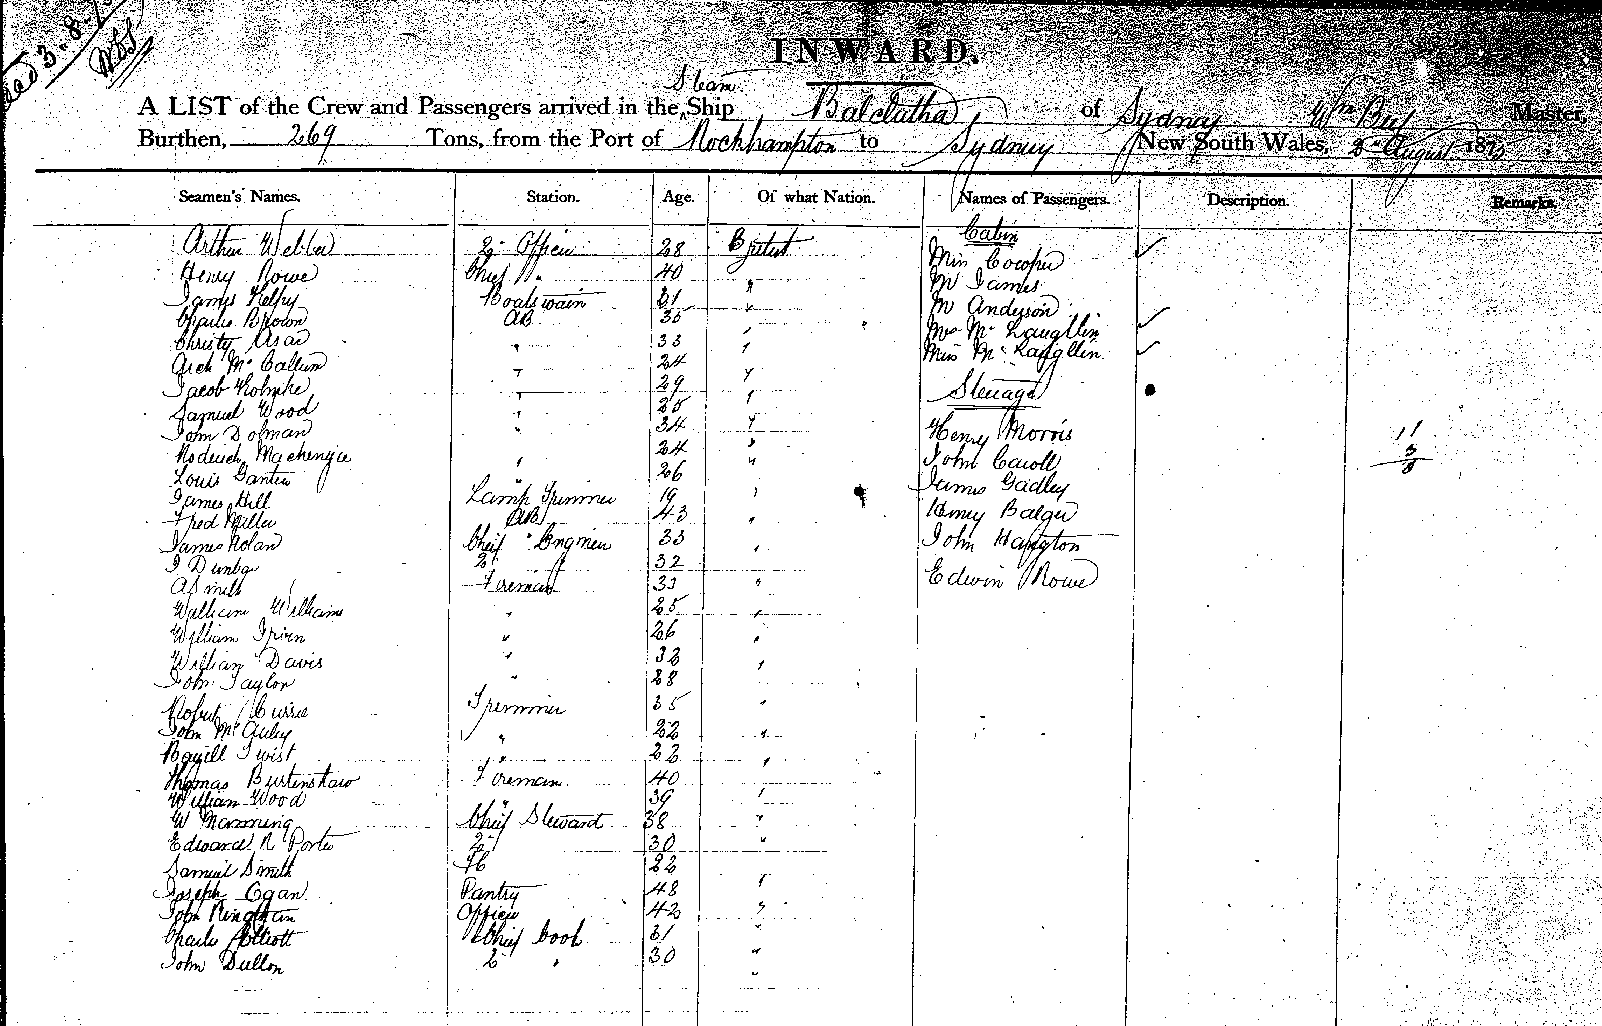 3.8.
INWARD.
Steam
A LIST of the Crew and Passengers arrived in the Ship Balclutha of Sydney Wm Master,
Burthen, 269 Tons, from the Port of Rockhampton to Sydney New South Wales, August 187
Seamen's Names. Station. Age. Of what Nation. Names of Passengers. Description. Remarks.
Cabin
Arthur Webber 2 Officer 28 British
Miss Cowper
Henry Rowe Chief " 40 "
Mr James
James Kelly Boatswain 31 "
Mr Anderson
Charles Brown AB 35 "
Mrs McLaughlin
Christy " 33 "
Miss McLaughlin
Arch McCallum " 24 "
Jacob " 29 "
Steerage
Samuel Wood " 25 "
John Dolman " 34 "
Henry Morris 11
Roderick Mackenzie " 24 "
John Caroll 3
8
Louis " 26 "
James Gadley
James Hill Lamp Trimmer 19 "
Fred Miller AB 43 "
Henry Balger
James Nolan Chief Engineer 33 "
John
J 2 " 32 "
Edwin Rowe
A Smith Foreman 33 "
William Williams " 25 "
William " 26 "
William Davis " 32 "
John Taylor " 28
Robert Currie Trimmer 35 "
John McAuley " 22 "
Twist " 22 "
Thomas Burtenshaw Foreman 40 "
William Wood " 39 "
W Manning Chief Steward 38 "
Edward R Porter 2 " 30 "
Samuel Smith 22
Joseph Egan Pantry 48 "
John Officer 42 "
Charles Elliott Chief Cook 31 "
John Dullon 2 " 30 "